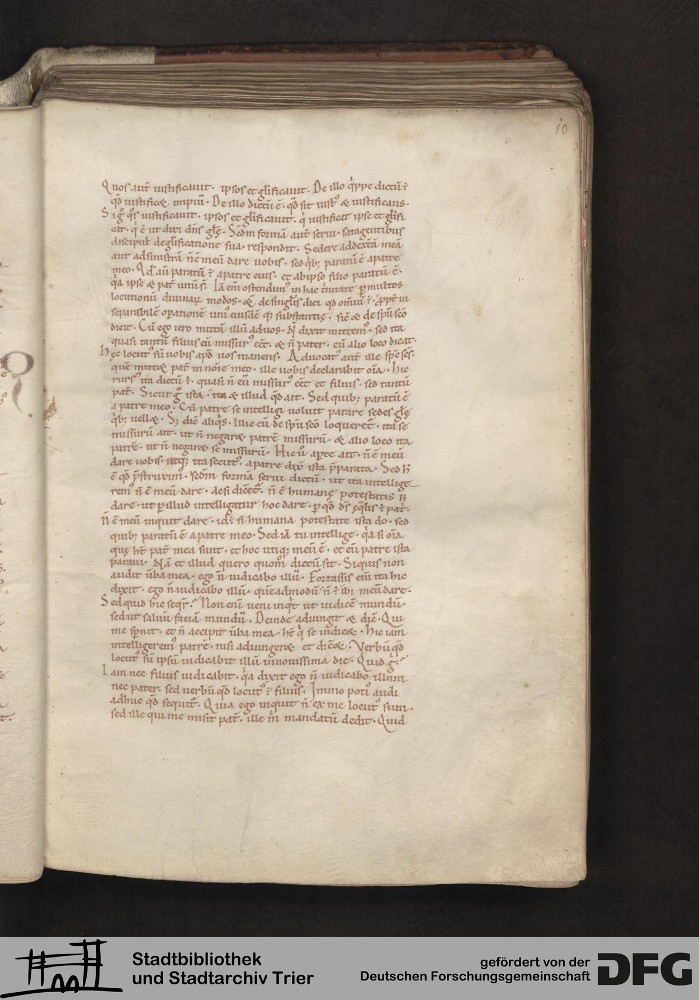 10
Quos aut̄ iustificauit. ipsos et gl̄ificauit. De illo q̓ppe dictū ē
qd̄ iustificet impiū. De illo dictū ē. qd̄ sit iust᷒ et iustificans.
S igͦ q̓s iustificauit. ipsos et gl̄ificauit. q̓ iustificat ipse et gl̄ifi
cat. q̓ ē ut dixi dn̄s glę. Scdm̄ formā aut̄ serui. satagentibus
discipul̄ de glificatione sua. respondit. Sedere ad dextā meā
aut ad sinistrā n̄ ē meū dare uobis. sed q̓b; paratū ē a patre
meo. Qd̄ aū paratū ē a patre eius. et ab ipso filio paratū ē.
q̓a ipse et pat̄ unū s̄t. Iā eni ostendim᷒ in hac t̓nitate p multos
locutionū diuinar̄ modos. et de singulis dici qd̄ om̄iū ē. ꝓpt̄ in
separabilē opationē uni᷒ eiusdē q; substantię. sic̄ et de spū scō
dicit. Cū ego iero mittā illū ad uos. N̄ dixit mittem᷒. sed ita
quasi tantū filius eū missur᷒ eēt. et n̄ pater. cū alio loco dicat.
H ęc locut᷒ sū uobis apd̄ uos manens. Aduocat᷒ aut̄ ille sp̄c sc̄s.
quē mittet pat̄ in noīe meo. ille uobis declarabit oīa. Hic
rurs᷒ ita dictū ē. quasi n̄ eū missur᷒ eēt et filius. sed tantū
pat̄. Sicut gͦ ista. ita et illud qd̄ ait. Sed quib; paratū ē
a patre meo. Cū patre se intelligi uoluit parare sedes glę
q̓b; uellet. S; dic̄ aliq̓s. Illic cū de spū scō loqueret̄. ita se
missurū ait. ut n̄ negaret patrē missurū. et alio loco ita
patrē. ut n̄ negaret se missurū. Hic ū apte ait. n̄ ē meū
dare uobis. atq; ita secut᷒. a patre dix̄ ista p̄parata. Sed h̄
ē qd̄ p̄struxim᷒. scdm̄ formā serui dictū. ut ita intellige
rem᷒ n̄ ē meū dare. ac si dicet̄. n̄ ē humanę potestatis ħ
dare. ut p illud intelligatur hoc dare. p qd̄ d̄s ęq̄lis ē pat̄.
N̄ ē meū inquit dare. id.ē. n̄ humana potestate ista do. sed
quib; paratū ē a patre meo. Sed iā tu intellige. q̓a si oīa
quę ht̄ pat̄ mea sunt. et hoc utiq; meū ē. et cū patre ista
paraui. Nā et illud quero quom̄ dictū sit. Si quis non
audit ūba mea. ego n̄ iudicabo illū. Fortassis enī ita hic
dixit. ego n̄ iudicabo illū. quē admodū n̄ ē ibi meū dare.
S ed quid hic seq̓r̄. Non enī ueni inq̓t ut iudicē mundū.
sed ut saluū faciā mundū. Deinde adiungit et dic̄. Qui
me sp̄nit. et n̄ accipit ūba mea. ht̄ q̓ se iudicet. Hic iam
intelligerem᷒ patrē. nisi adiungeret et dicēt. Verbū qd̄
locut᷒ sū ipsū iudicabit illū in nouissima die. Quid gͦ.
I am nec filius iudicabit. q̓a dixit ego n̄ iudicabo illum
nec pater. sed uerbū qd̄ locut᷒ ē filius. Immo poti᷒ audi
adhuc qd̄ sequit̄. Quia ego inquit n̄ ex me locut᷒ sum.
sed ille qui me misit pat̄. ille m̄ mandatū dedit. Quid
Stadtbibliothek
und Stadtarchiv Trier
gefördert von der
Deutschen Forschungsgemeinschaft
DFG